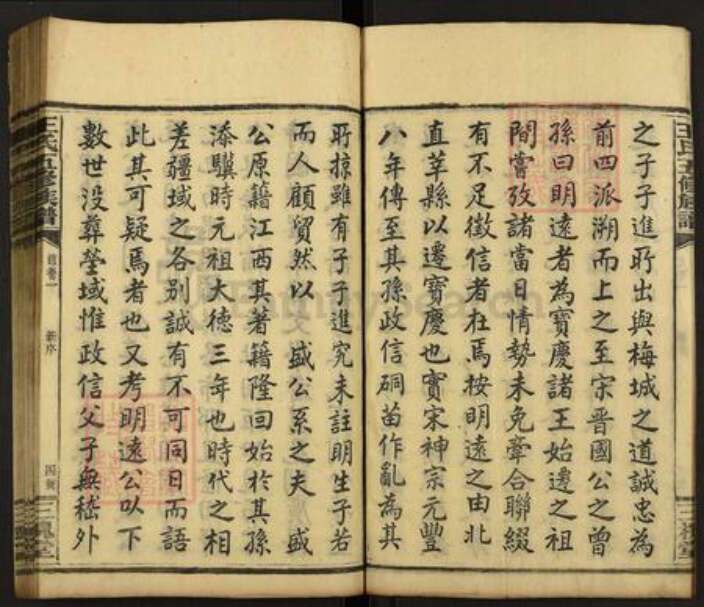 之子子進所出與梅城之道誠忠為
前四派溯而上之至宋晉國公之曾
孫曰明遠者為寶慶諸王始遷之祖
間嘗攷諸當日情勢未免牽合聯綴
有不足徵信者在焉按明遠之由北
直莘縣以遷寶慶也實宋神宗元豐
八年傳至其孫政信硐苗作亂為其
王氏五修族譜
首卷一
新序
三槐堂
所掠雖有子子進究未註明生子若
而人顧貿然以 盛公系之夫 盛
公原籍江西其著籍隆回始於其孫
添驥時元祖大德三年也時代之相
差疆域之各別誠有不可同日而語
此其可疑焉者也又考明遠公以下
數世没葬塋域惟政信父子無嵇外